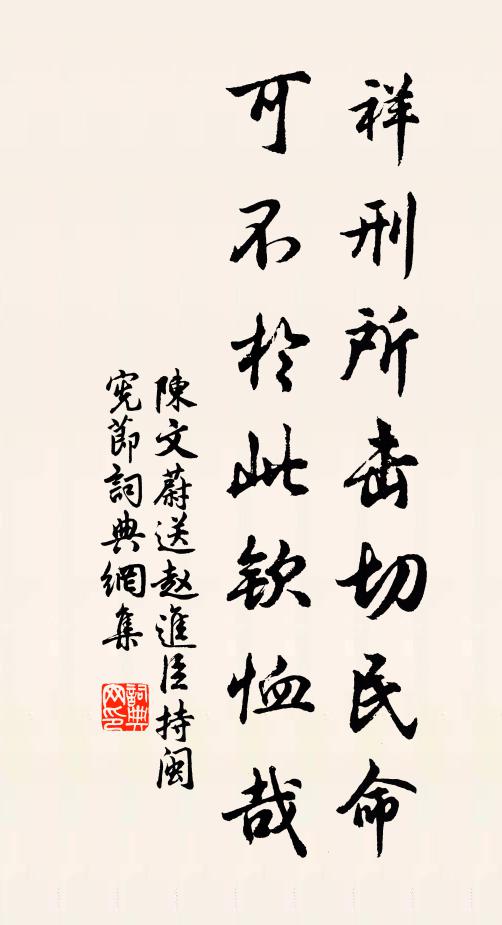 祥刑所击切民命
可不於此欽恤哉
陳文蔚送赵進臣持閩
宪節詞典網集
詞典网印